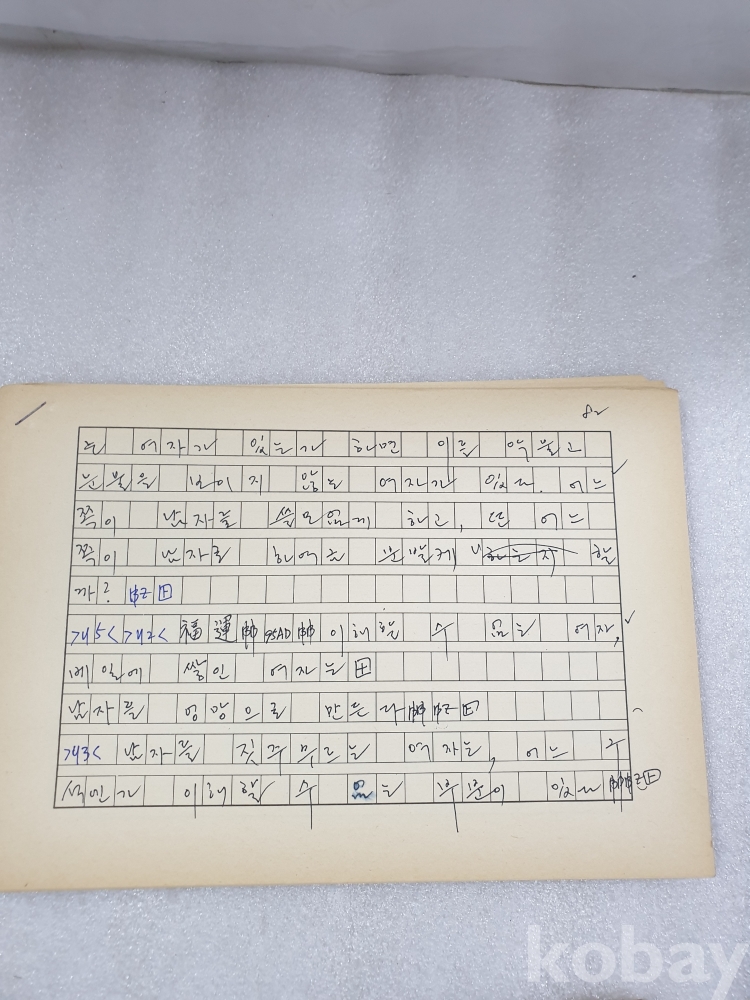 82
는 여자가 있는가 하면 이를 악물고
눈물을 보이지 않는 여자가 있다. 어느
쪽이 남자를 쓸모없게 하고, 또 어느
쪽이 남자로 하여금 분발케 할
까?
福運 이해할 수 없는 여자,
베일에 쌓인 여자는
남자를 엉망으로 만든다
남자를 짓주무르는 여자는, 어느 구
석엔가 이해할 수 없는 부분이 있다
kobay